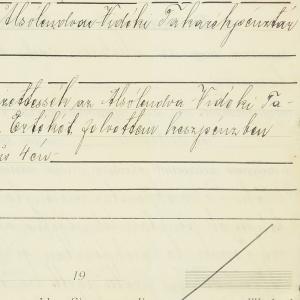 Alsólendva Vidéki Takarékpénztár
fizettessék az Alsólendva Vidéki Ta-
Értékét felvettem készpénzben
4én
19